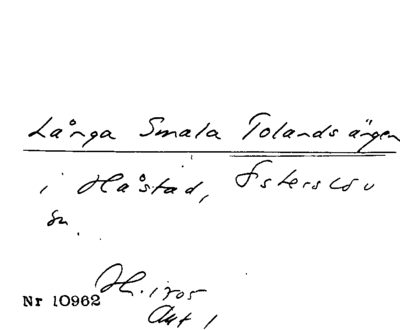 Långa Smala Tolandsängen
i Håstad, Esterslöv
sn.
H. 1705
Akt 1
Nr 10962